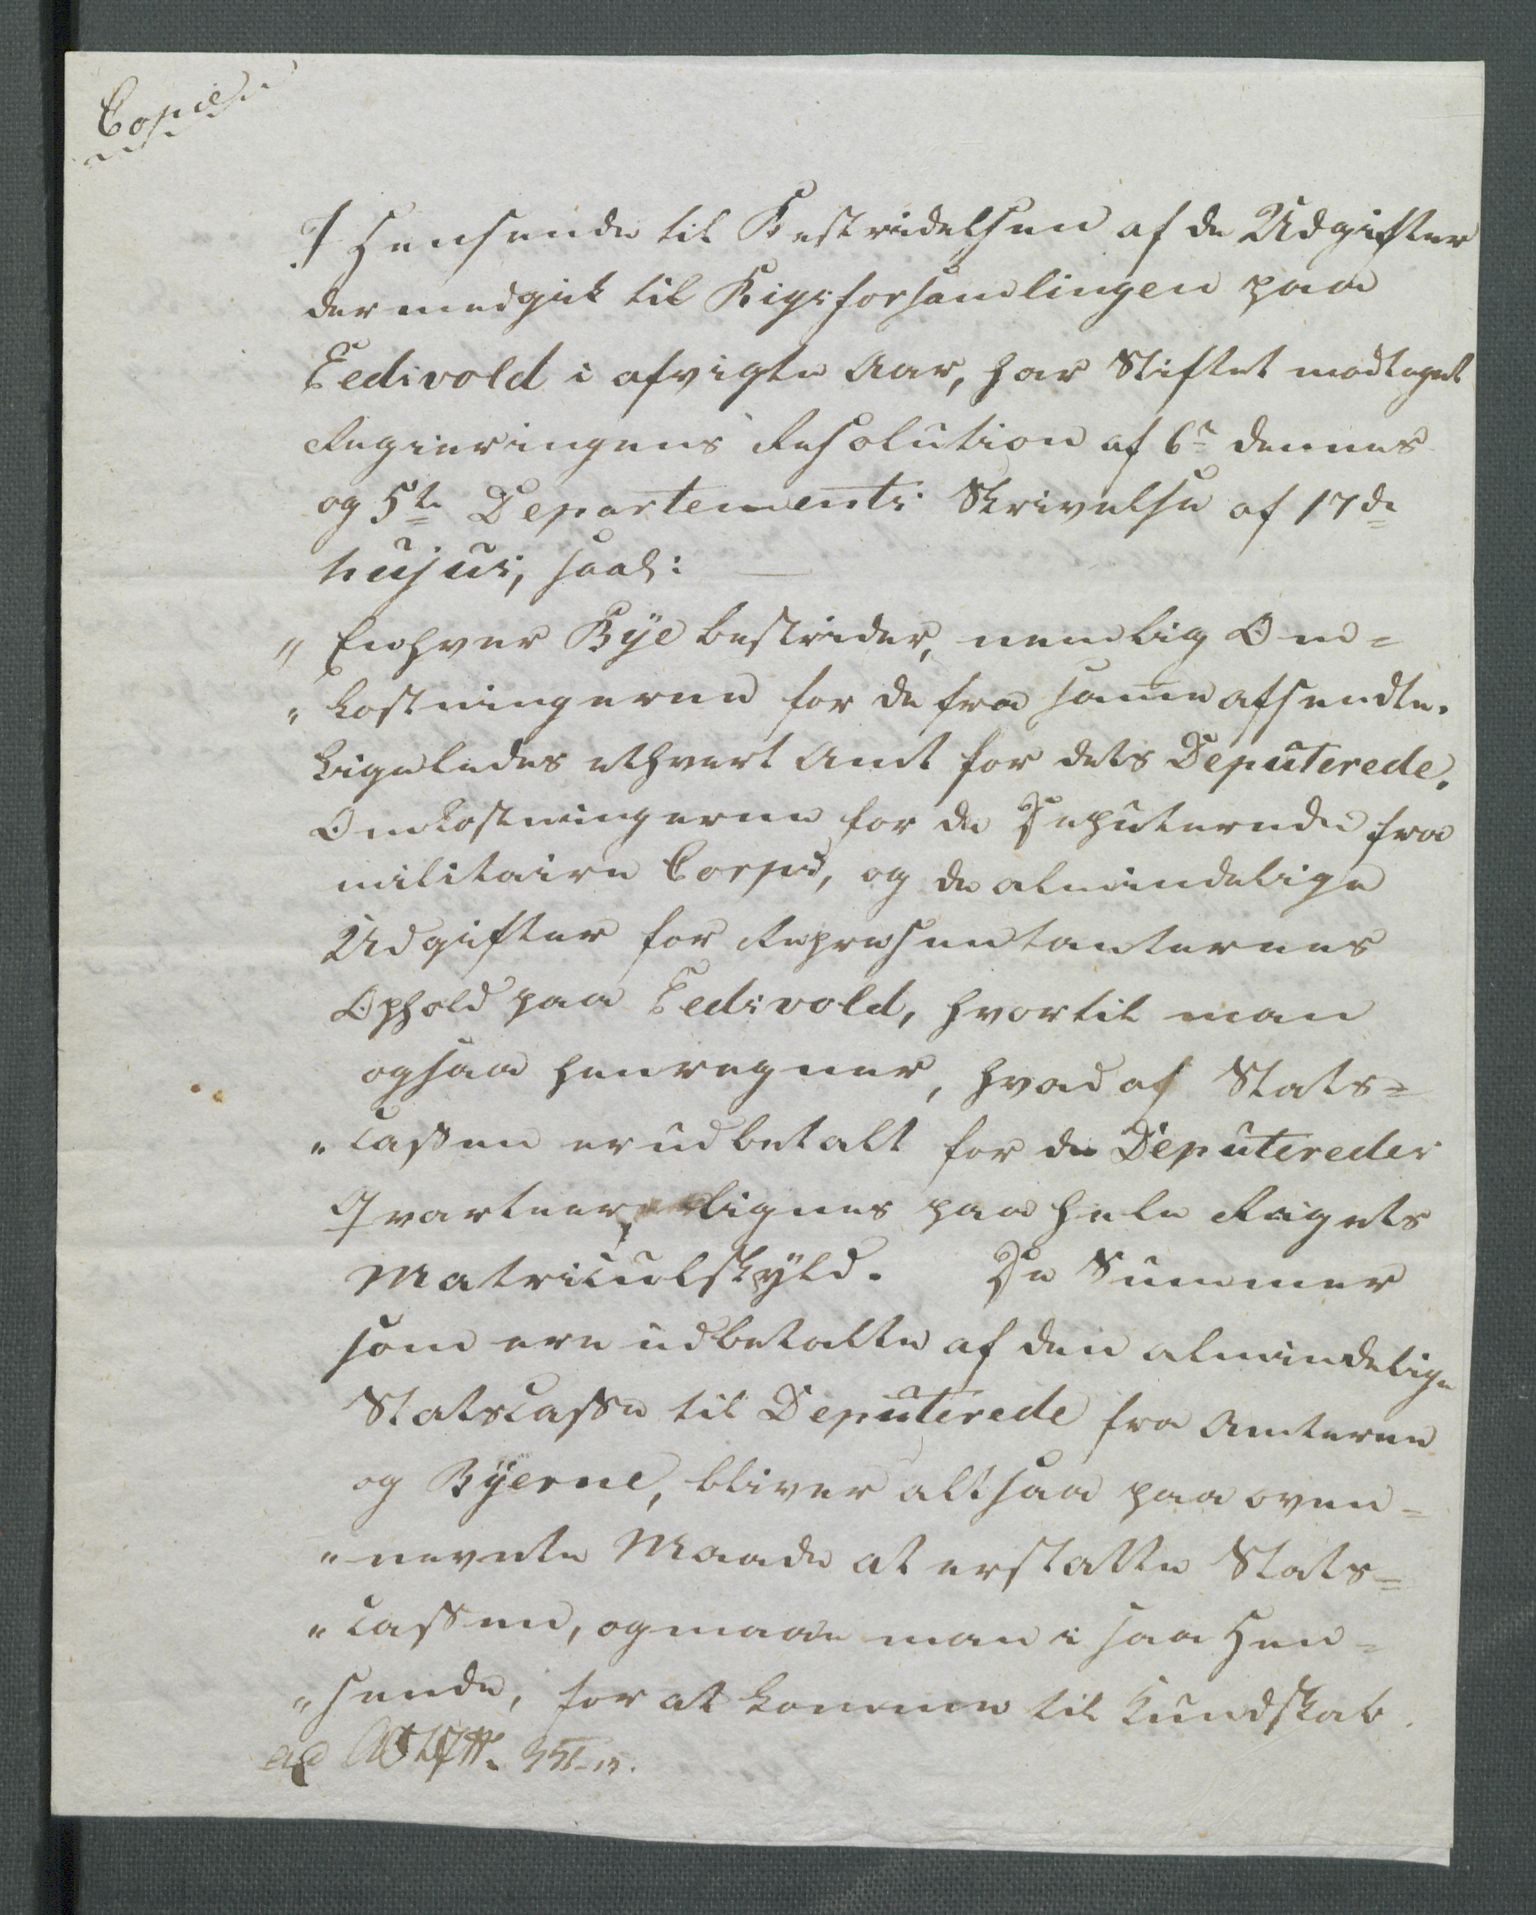 Copie
I Hensende til Bestridelsen af de Udgifter
der medgik til Rigsforsamlingen paa
Eedsvold i afvigte Aar, har Stiftet modtaget
Regieringens Resolution af 6te dennes
og 5te Departements Skrivelse af 17de
hujus, saal:
" Enhver Bÿe bestrider, nemlig Om=
" kostningerne for de fra samme afsendte.
Ligeledes ethvert Amt for dets Deputerede.
Omkostningerne for de Deputerede fra
militaire Corps, og de almindelige
Udgifter for Repræsentanternes
Ophold paa Eedsvold, hvortil man
ogsaa henregner, hvad af Stats=
" cassen er udbetalt for de Deputeredes
Qvarteer, lignes paa hele Rigets
Matriculskÿld. De Summer
som ere udbetalte af den almindelige
Statscasse til Deputerede fra Amterne
og Bÿerne, bliver altsaa paa oven=
" nevnte Maade at erstatte Stats=
" cassen, og maae man i saa Hen=
" seende, for at komme til Kundskab
ad